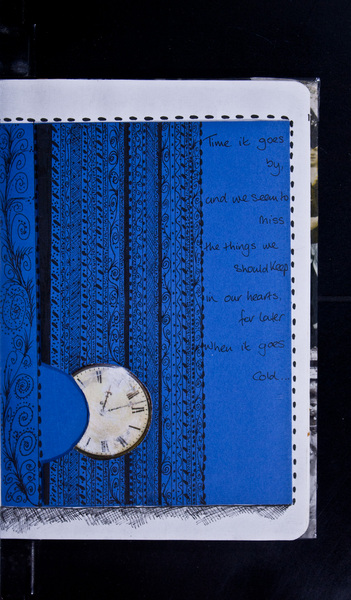 Time it goes
by,
and we seem to
miss
the things we
should keep
in our hearts,
for later
when it goes
cold...